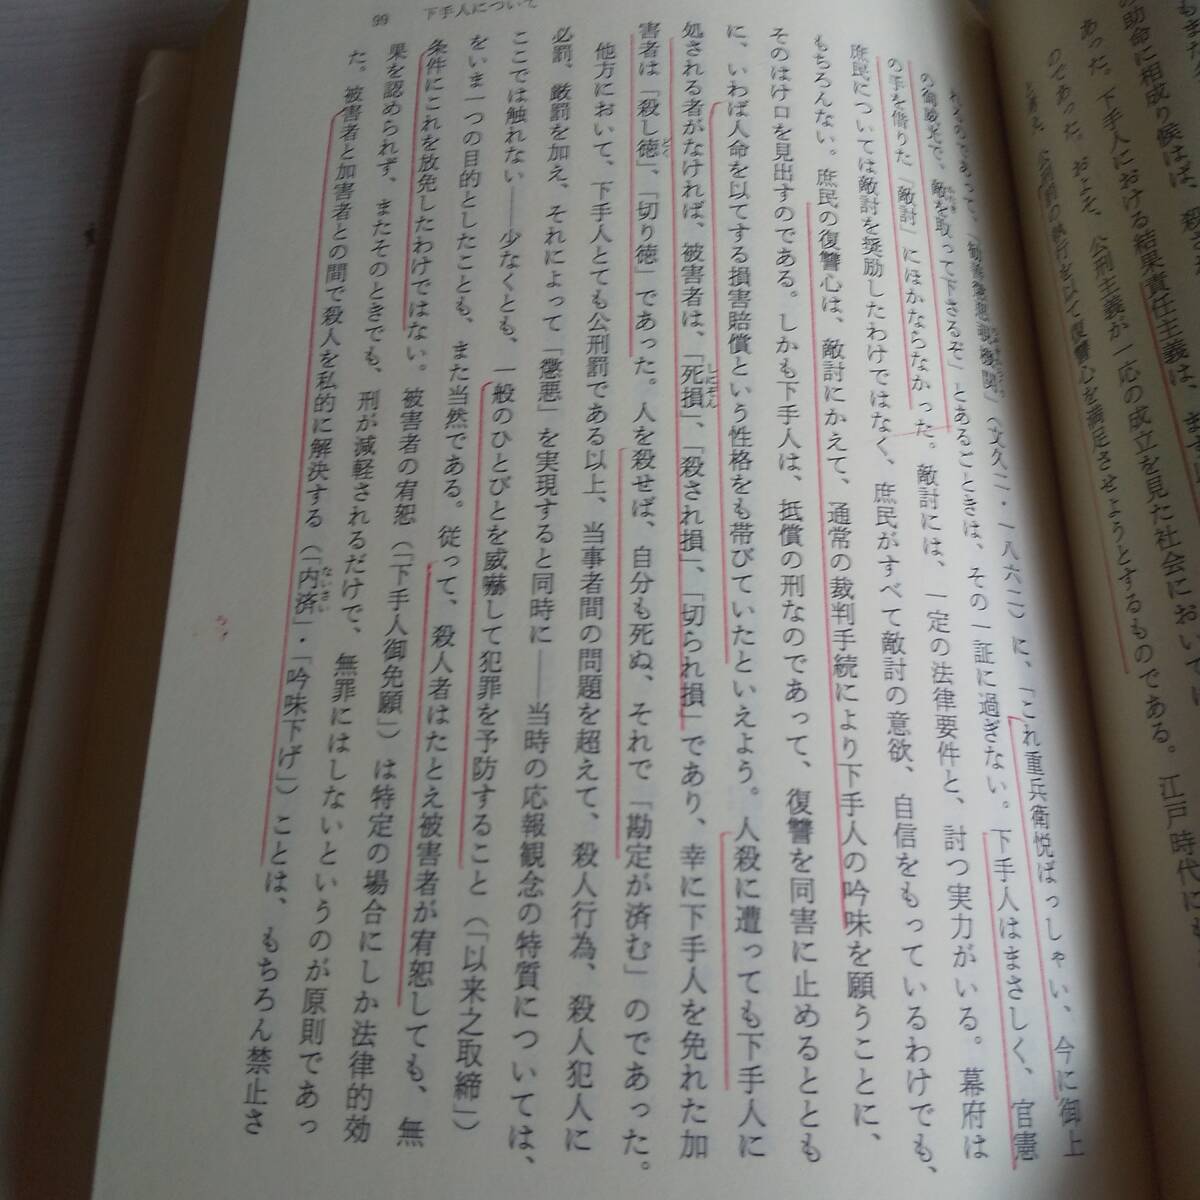 も
の助命に相成り候はば、殺
あった。下手人における結果責任主義は、ま
のであった。およそ、公刑主義が一応の成立を見た社会においては、
公刑罰の執行を以て復讐心を満足させようとするものである。江戸時代に
99 下手人について
れるのであって、「勧善懲悪覗機関」(文久二・一八六二)に、「これ重兵衛悦ばっしゃい、今に御上
の御威光で、敵を取って下さるぞ」とあるごときは、その一証に過ぎない。下手人はまさしく、官憲
の手を借りた「敵討」にほかならなかった。敵討には、一定の法律要件と、討つ実力がいる。幕府は
庶民については敵討を奨励したわけではなく、庶民がすべて敵討の意欲、自信をもっているわけでも、
もちろんない。庶民の復讐心は、敵討にかえて、通常の裁判手続により下手人の吟味を願うことに、
そのはけ口を見出すのである。しかも下手人は、抵償の刑なのであって、復讐を同害に止めるととも
に、いわば人命を以てする損害賠償という性格をも帯びていたといえよう。人殺に遭っても下手人に
処される者がなければ、被害者は、「死損」、「殺され損」、「切られ損」であり、幸に下手人を免れた加
害者は「殺し徳」、「切り徳」であった。人を殺せば、自分も死ぬ、それで「勘定が済む」のであった。
他方において、下手人とても公刑罰である以上、当事者間の問題を超えて、殺人行為、殺人犯人に
必罰、厳罰を加え、それによって「懲悪」を実現すると同時に――当時の応報観念の特質については、
ここでは触れない――少なくとも、一般のひとびとを威嚇して犯罪を予防すること(「以来之取締」)
をいま一つの目的としたことも、また当然である。従って、殺人者はたとえ被害者が宥恕しても、無
条件にこれを放免したわけではない。被害者の宥恕(「下手人御免願」)は特定の場合にしか法律的効
果を認められず、またそのときでも、刑が減軽されるだけで、無罪にはしないというのが原則であっ
た。被害者と加害者との間で殺人を私的に解決する(「内済」・「吟味下げ」)ことは、もちろん禁止さ